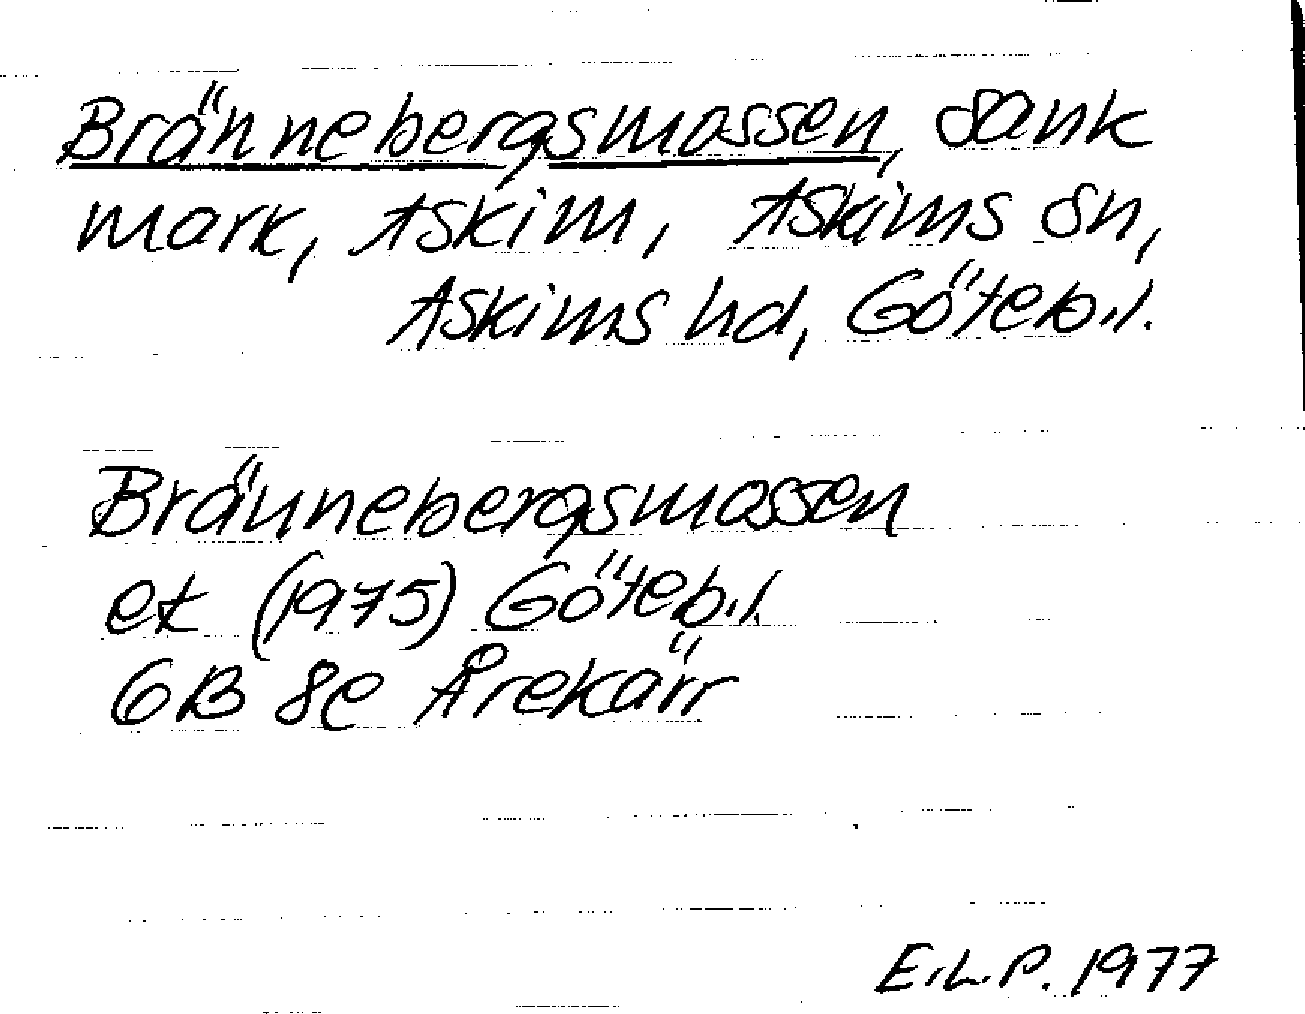 Brännebergsmossen, sank
mark, Askim, Askims sn,
Askims hd, Göteb.l.
Brännebergsmossen
ek (1975) Göteb.l.
6B 8e Årekärr
E.L.P. 1977